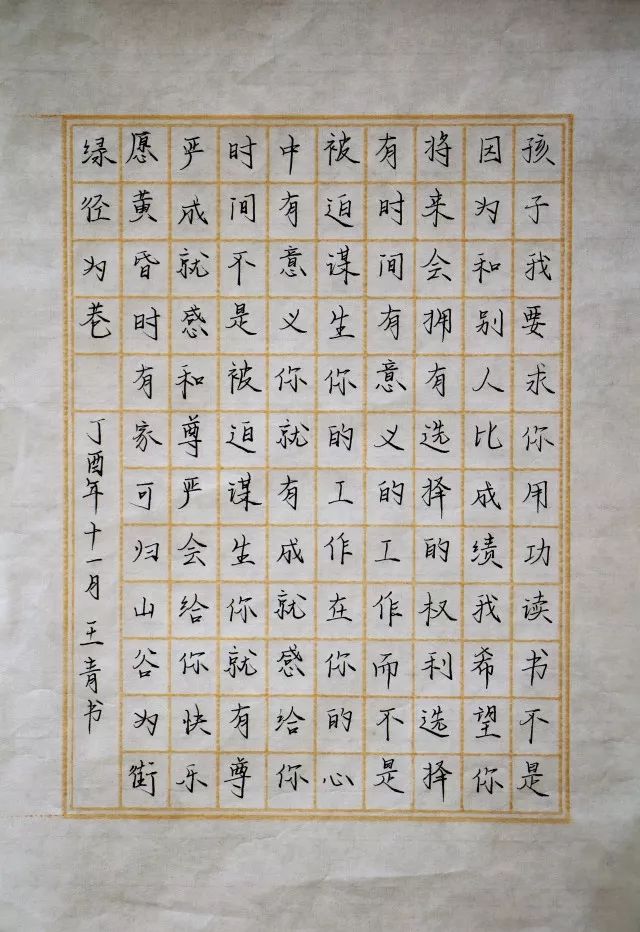 孩子我要求你用功读书不是
因为和别人比成绩我希望你
将来会拥有选择的权利选择
有时间有意义的工作而不是
被迫谋生你的工作在你的心
中有意义你就有成就感给你
时间不是被迫谋生你就有尊
严成就感和尊严会给你快乐
愿黄昏时有家可归山谷为街
绿径为巷
丁酉年十一月王青书